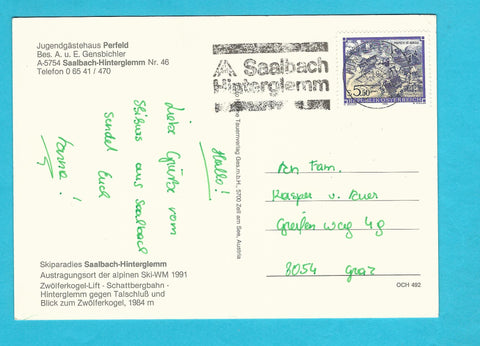 Jugendgästehaus Perfeld
Bes. A. u. E. Gensbichler
A-5754 Saalbach-Hinterglemm Nr. 46
Telefon 0 65 41 / 470
Saalbach
Hinterglemm
5.50
REPUBLIK ÖSTERREICH
Hallo!
Liebe Grüße vom
Skikurs aus Saalbach
sendet Euch
Tauernverlag Ges.m.b.H., 5700 Zell am See, Austria
An Fam.
Kasper u.
Greifenweg 4g
8054 Graz
Skiparadies Saalbach-Hinterglemm
Austragungsort der alpinen Ski-WM 1991
Zwölferkogel-Lift - Schattbergbahn -
Hinterglemm gegen Talschluß und
Blick zum Zwölferkogel, 1984 m
OCH 492